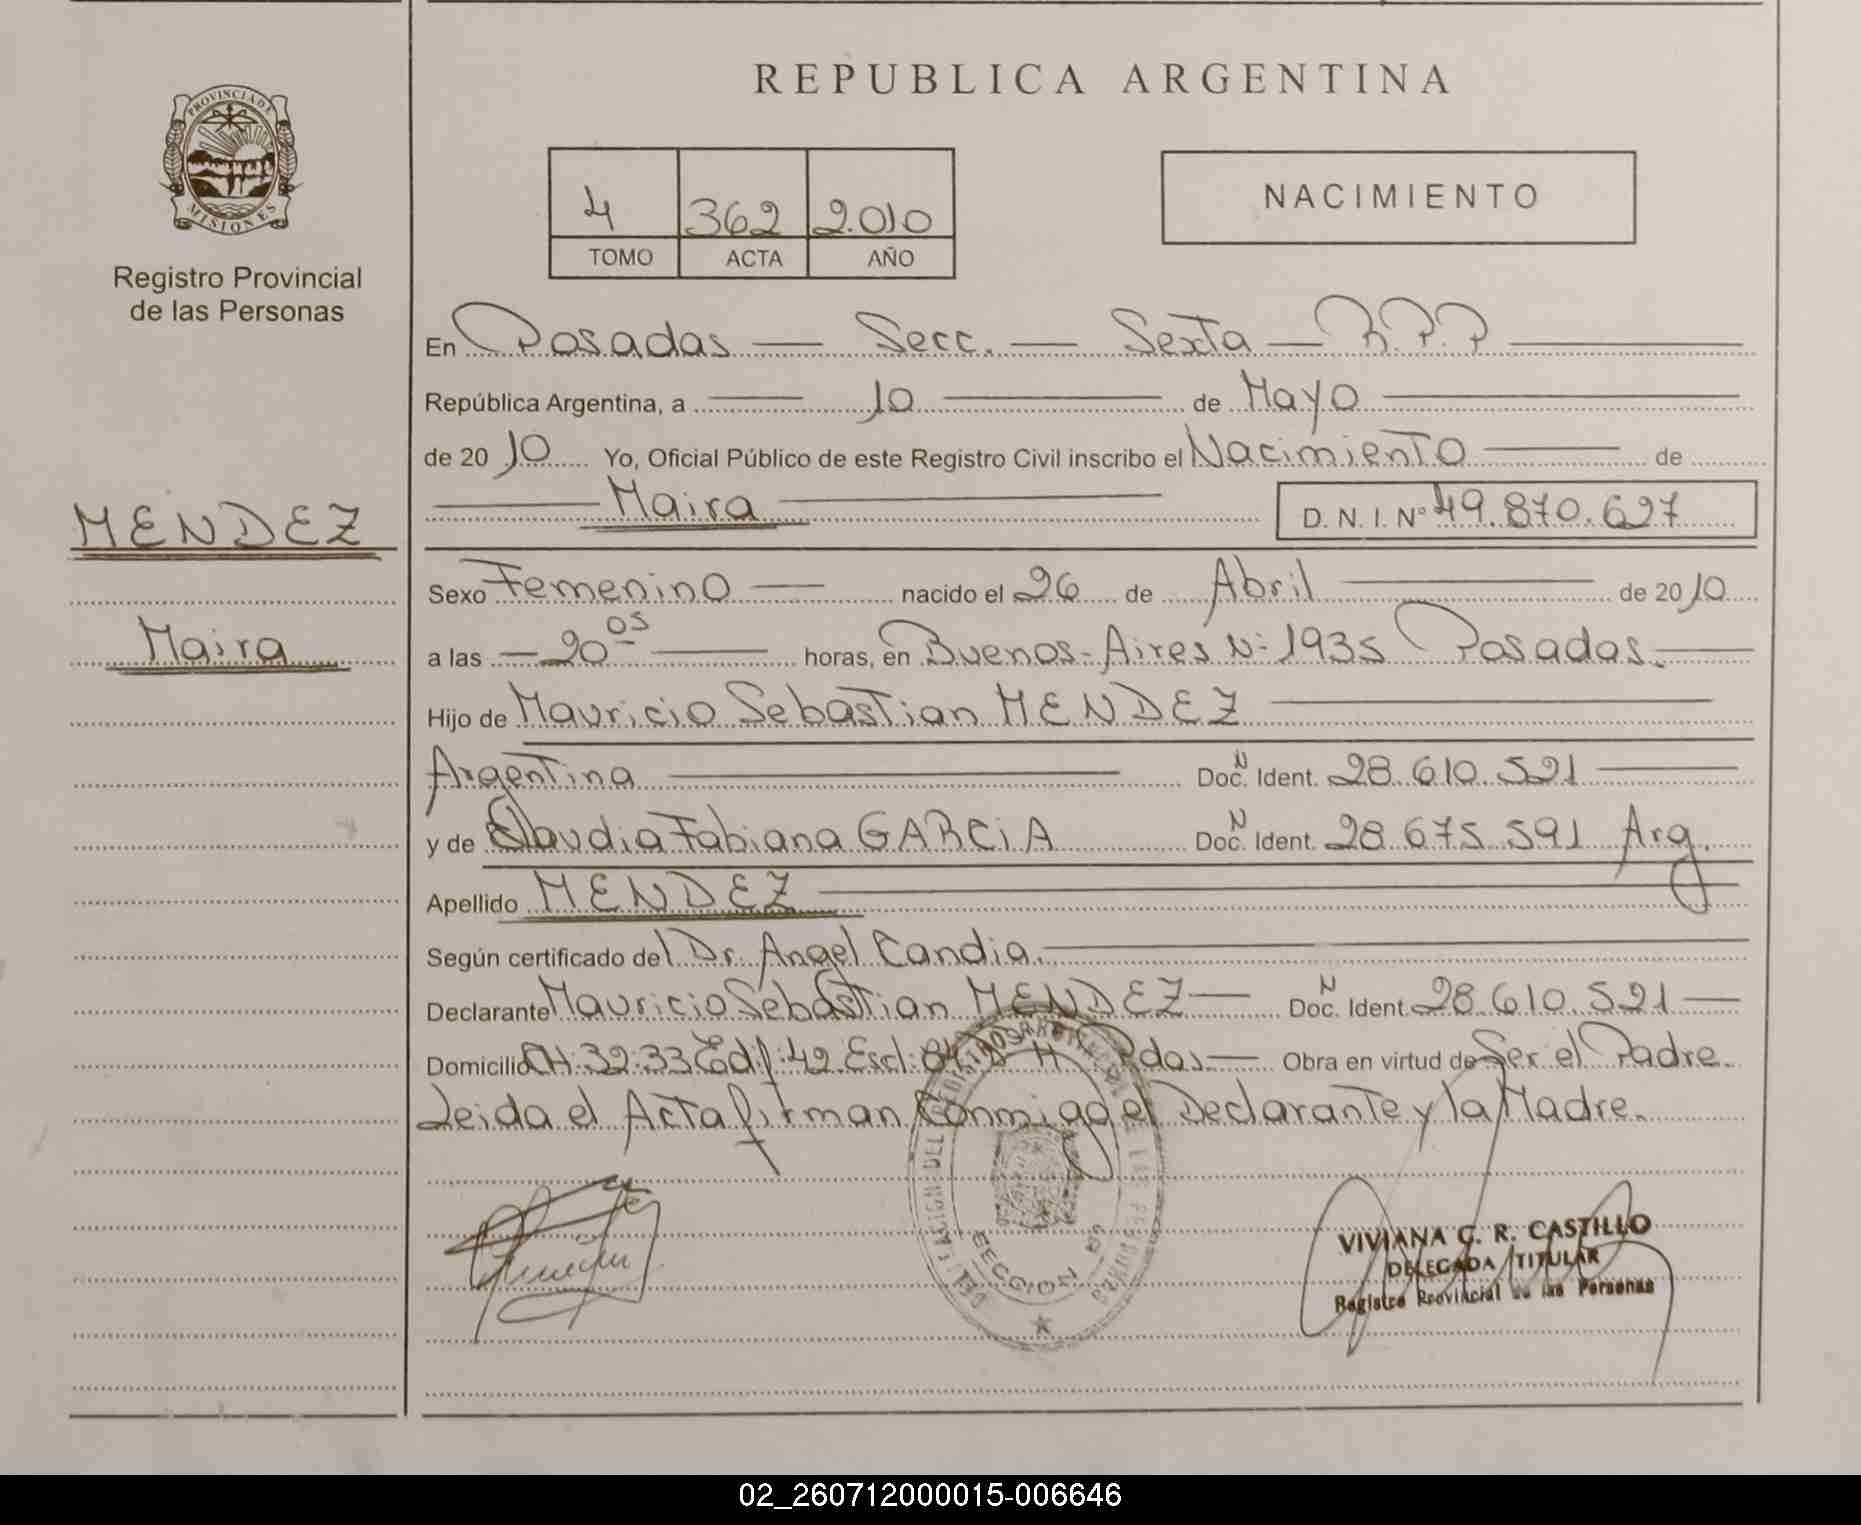 PROVINCIA DE
MISIONES
Registro Provincial
de las Personas
MENDEZ
Maira
REPUBLICA ARGENTINA
4 362 2.010
TOMO ACTA AÑO
NACIMIENTO
En Posadas — Secc. — Sexta — R.P.P
República Argentina, a 10 de Mayo
de 20 10 Yo, Oficial Público de este Registro Civil inscribo el Nacimiento de
Maira D. N. I. Nº 49.870.627
Sexo Femenino nacido el 26 de Abril de 2010
a las 20 05 horas, en Buenos-Aires Nº 1935 Posadas.
Hijo de Mauricio Sebastian MENDEZ
Argentina Doc. N Ident. 28.610.521
y de Claudia Fabiana GARCiA Doc. N Ident. 28.675.591 Arg.
Apellido MENDEZ
Según certificado del Dr. Angel Candia.
Declarante Mauricio Sebastian MENDEZ — Doc. N Ident. 28.610.521
Domicilio CH: 32-33 Edif: 42. Escl: 84. H Pdas. — Obra en virtud de Ser el Padre.
Leida el Acta firman Conmigo el Declarante y la Madre.
SECCION
VIVIANA G. R. CASTILLO
DELEGADA TITULAR
Registro Provincial de las Personas
02_260712000015-006646